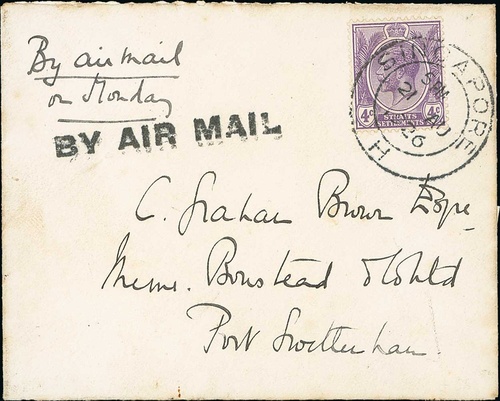 By air mail
on Monday
BY AIR MAIL
SINGAPORE
21 AU
26
H
4c 4c
STRAITS
SETTLEMENTS
C. Graham Brown Esqre
Messrs. Boustead & Co Ltd
Port Swettenham.